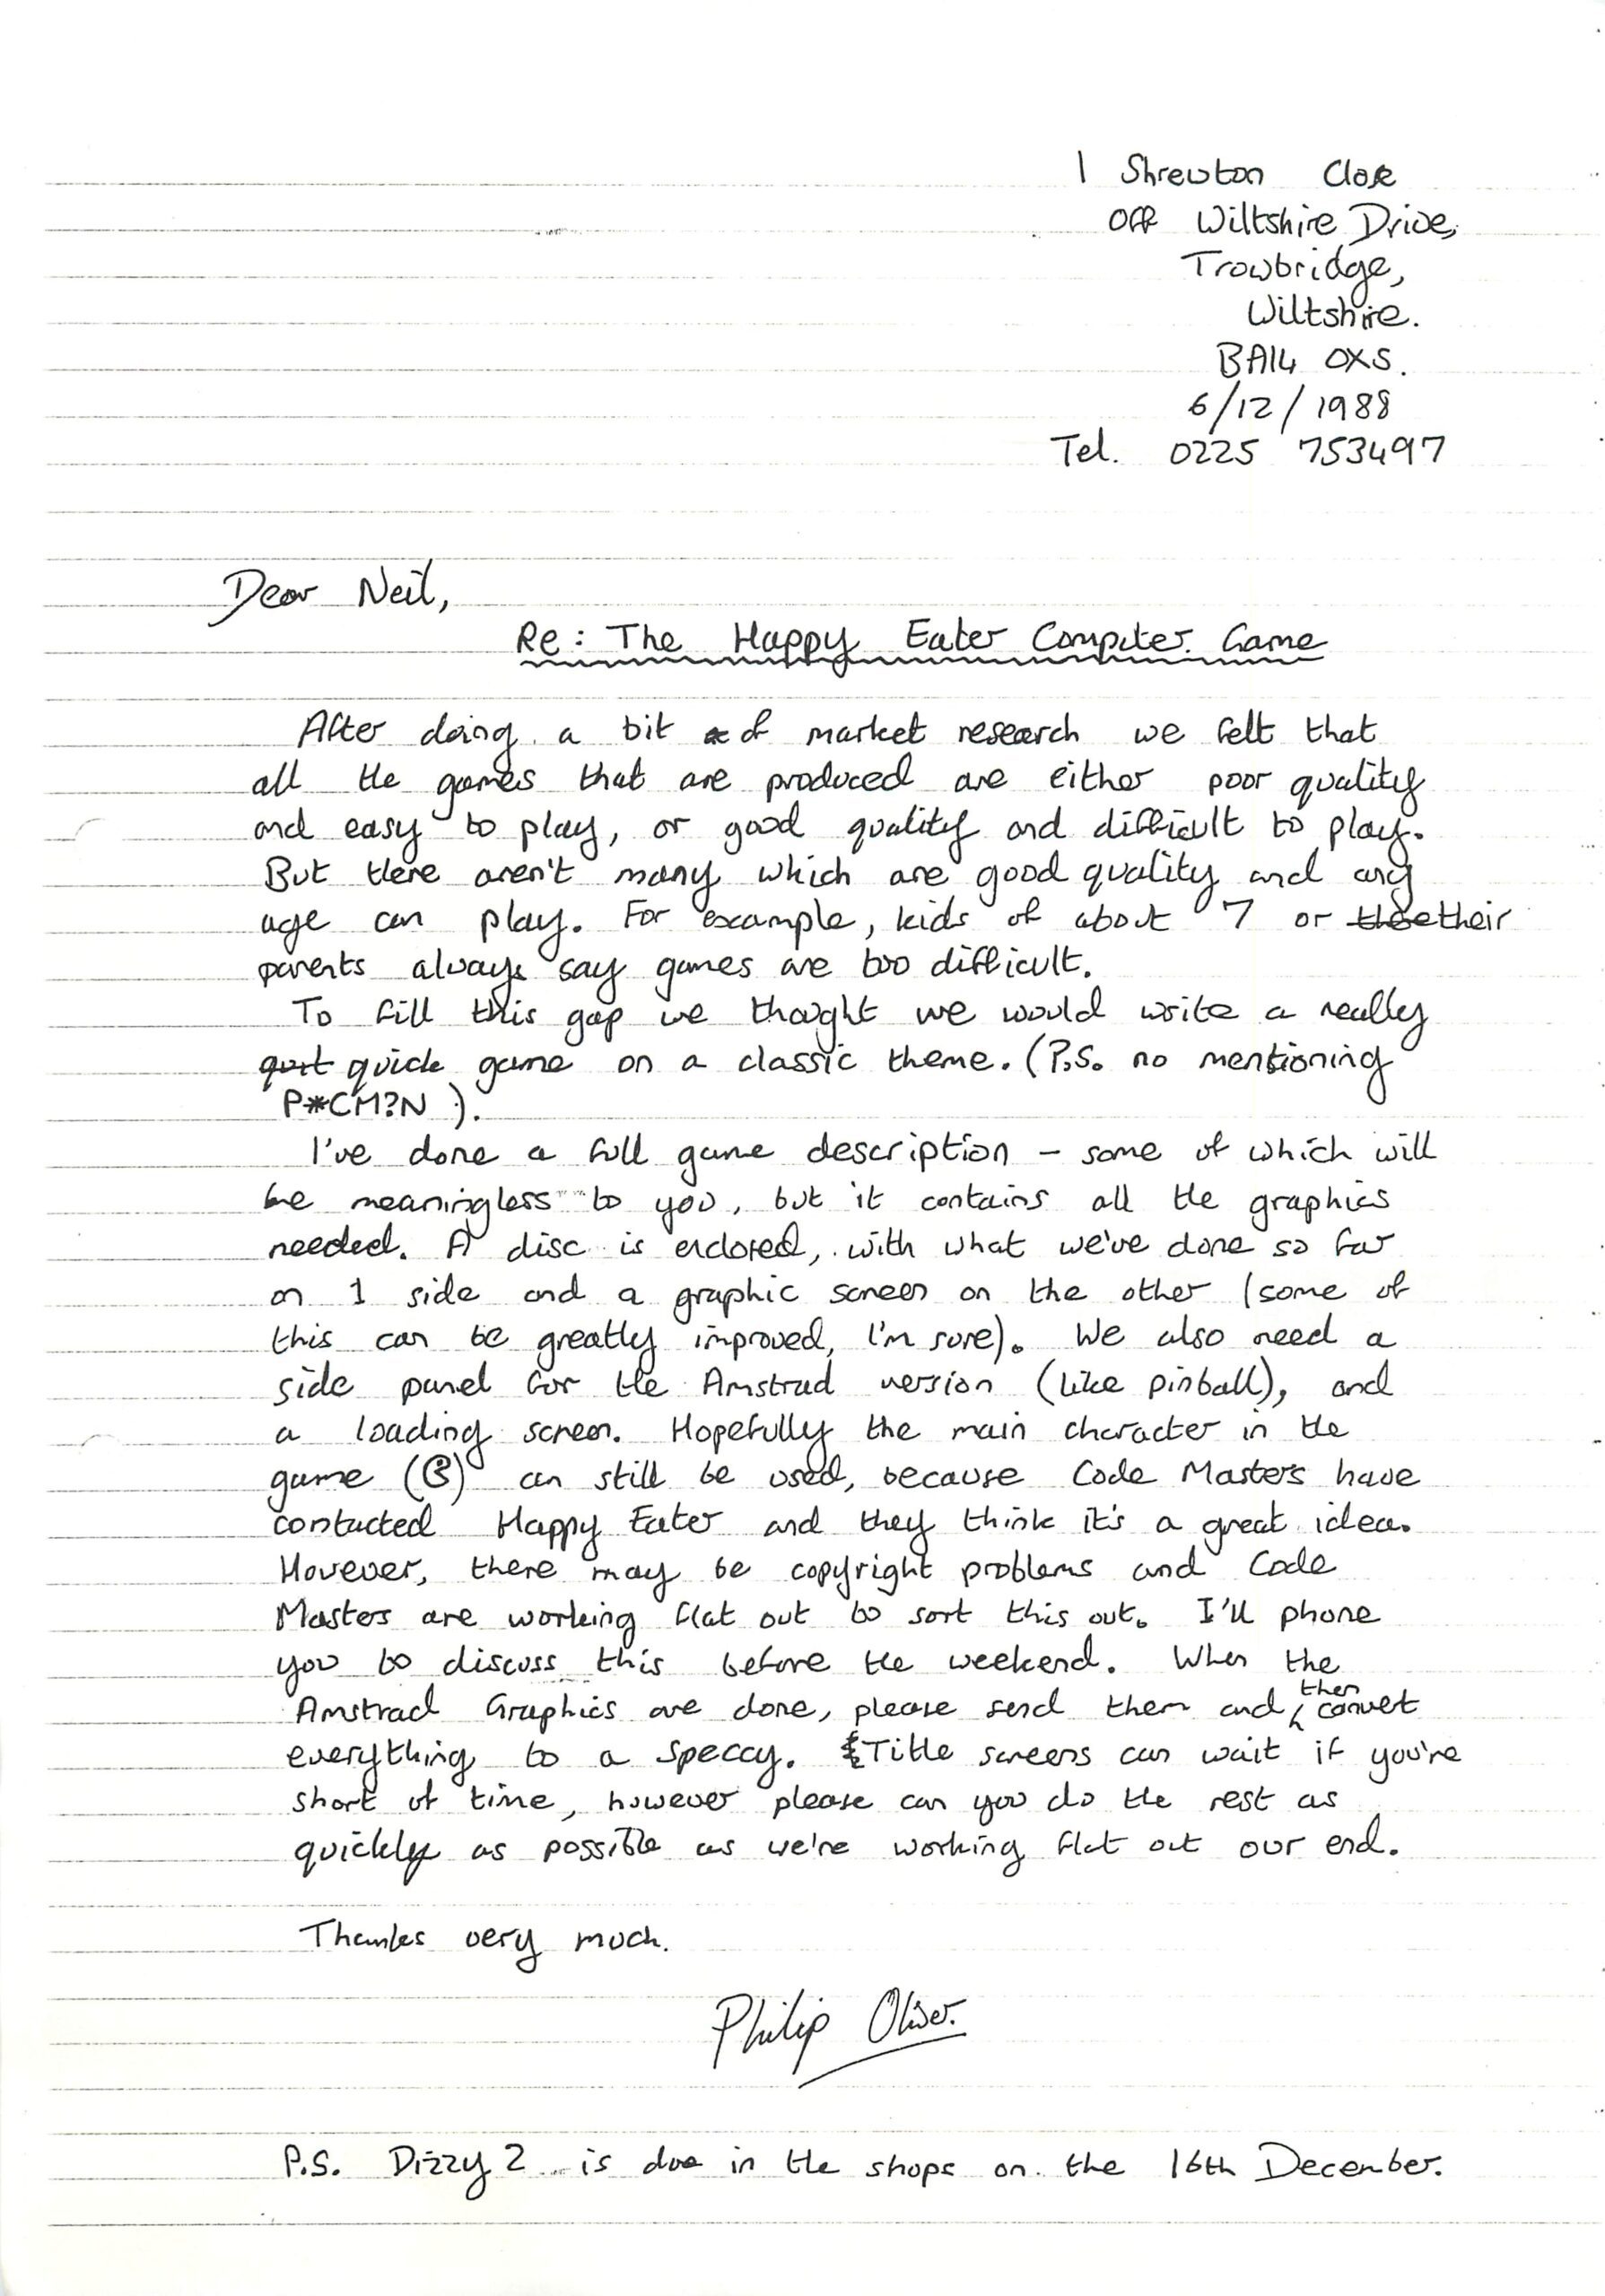 1 Shrewton Close
Off Wiltshire Drive,
Trowbridge,
Wiltshire.
BA14 0XS.
6/12/1988
Tel. 0225 753497
Dear Neil,
Re: The Happy Eater Computer Game
After doing a bit of market research we felt that
all the games that are produced are either poor quality
and easy to play, or good quality and difficult to play.
But there aren't many which are good quality and any
age can play. For example, kids of about 7 or their
parents always say games are too difficult.
To fill this gap we thought we would write a really
quit quick game on a classic theme. (P.S. no mentioning
P*CM?N ).
I've done a full game description - some of which will
be meaningless to you, but it contains all the graphics
needed. A disc is enclosed, with what we've done so far
on 1 side and a graphic screen on the other (some of
this can be greatly improved, I'm sure). We also need a
side panel for the Amstrad version (like pinball), and
a loading screen. Hopefully the main character in the
game ( ) can still be used, because Code Masters have
contacted Happy Eater and they think it's a great idea.
However, there may be copyright problems and Code
Masters are working flat out to sort this out. I'll phone
you to discuss this before the weekend. When the
Amstrad Graphics are done, please send them and then convet
everything to a speccy. Title screens can wait if you're
short of time, however please can you do the rest as
quickly as possible as we're working flat out our end.
Thanks very much.
Philip Oliver.
P.S. Dizzy 2 is due in the shops on the 16th December.